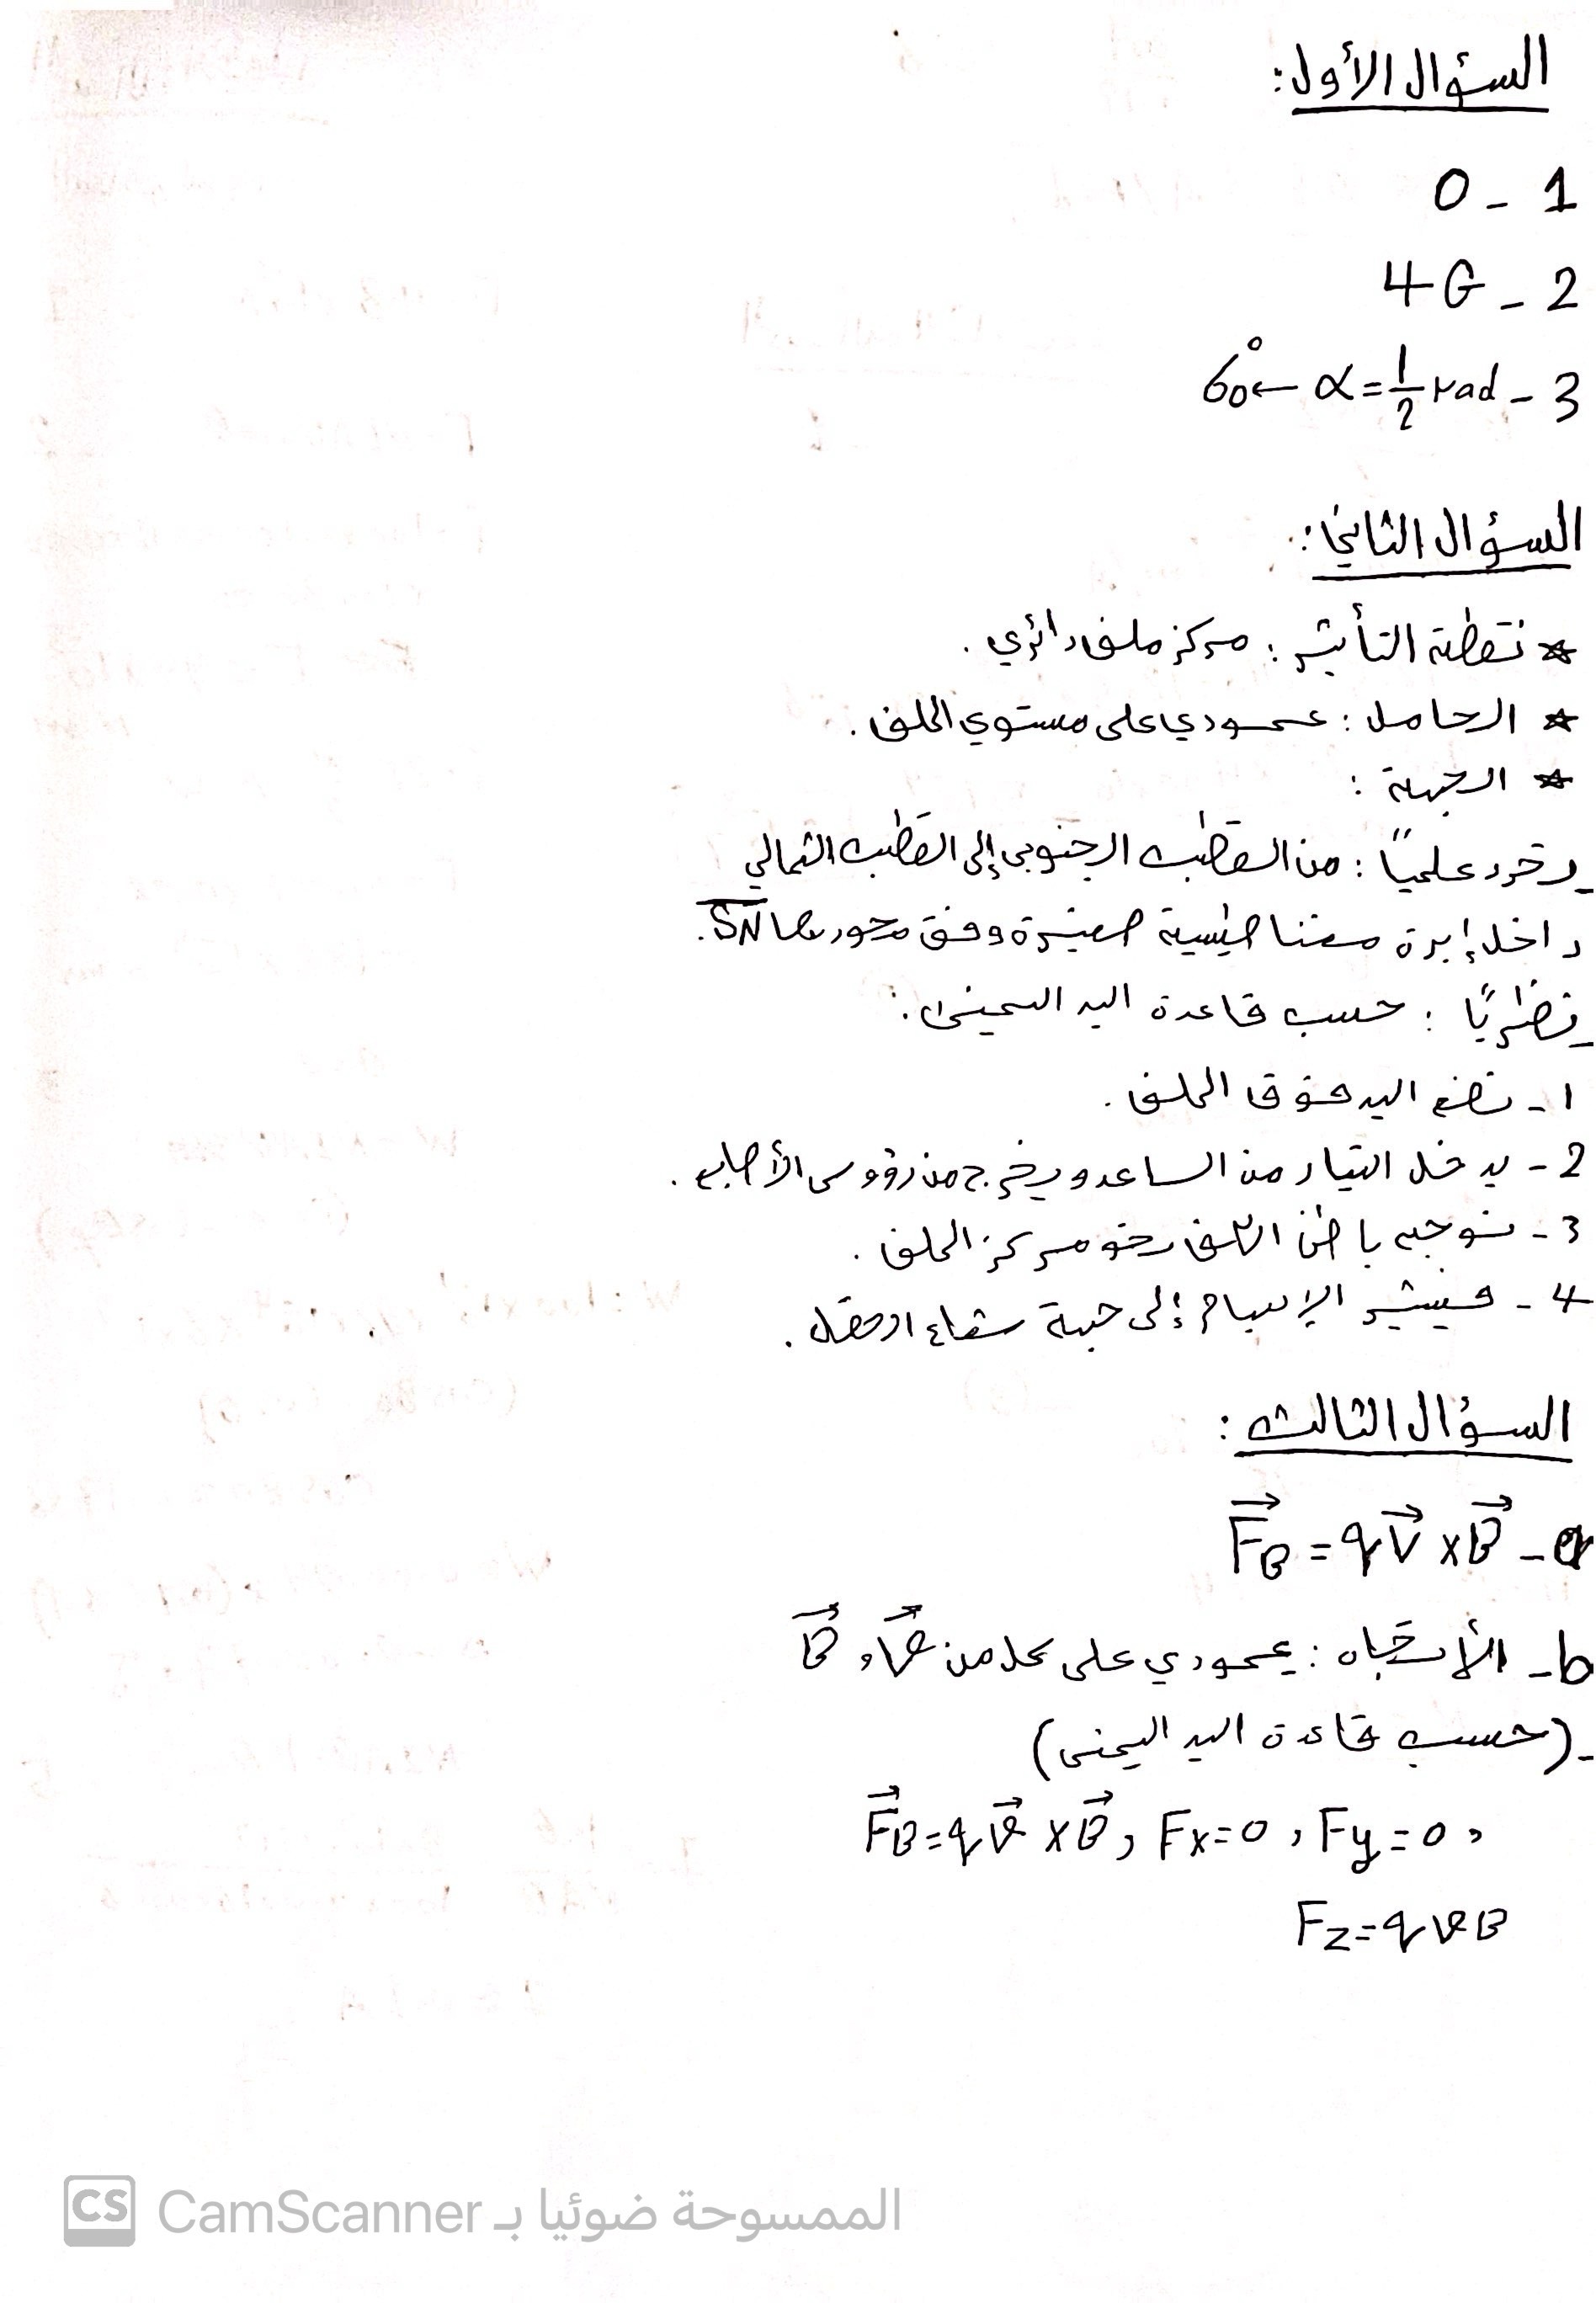 السؤال الأول:
1 - 0
2 - 4G
3 - α = 1/2 rad ← 60°
السؤال الثاني:
* نقطة التأثير: مركز ملف دائري.
* الحامل: عمودي على مستوي الملف.
* الجهة:
- علمياً: من القطب الجنوبي إلى القطب الشمالي
داخل إبرة مغناطيسية صغيرة وفق محورها SN.
- نظريًا: حسب قاعدة اليد اليمنى:
1 - نضع اليد فوق الملف.
2 - يدخل التيار من الساعد ويخرج من رؤوس الأصابع.
3 - نوجه باطن الكف نحو مركز الملف.
4 - فيشير الإبهام إلى جهة شعاع الحقل.
السؤال الثالث:
a - F⃗B = qV⃗ × B⃗
b - الأتجاه: عمودي على كل من v⃗, B⃗
- (حسب قاعدة اليد اليمنى)
F⃗B = qv⃗ × B⃗, Fx = 0, Fy = 0,
Fz = qvB
CS الممسوحة ضوئيا بـ CamScanner